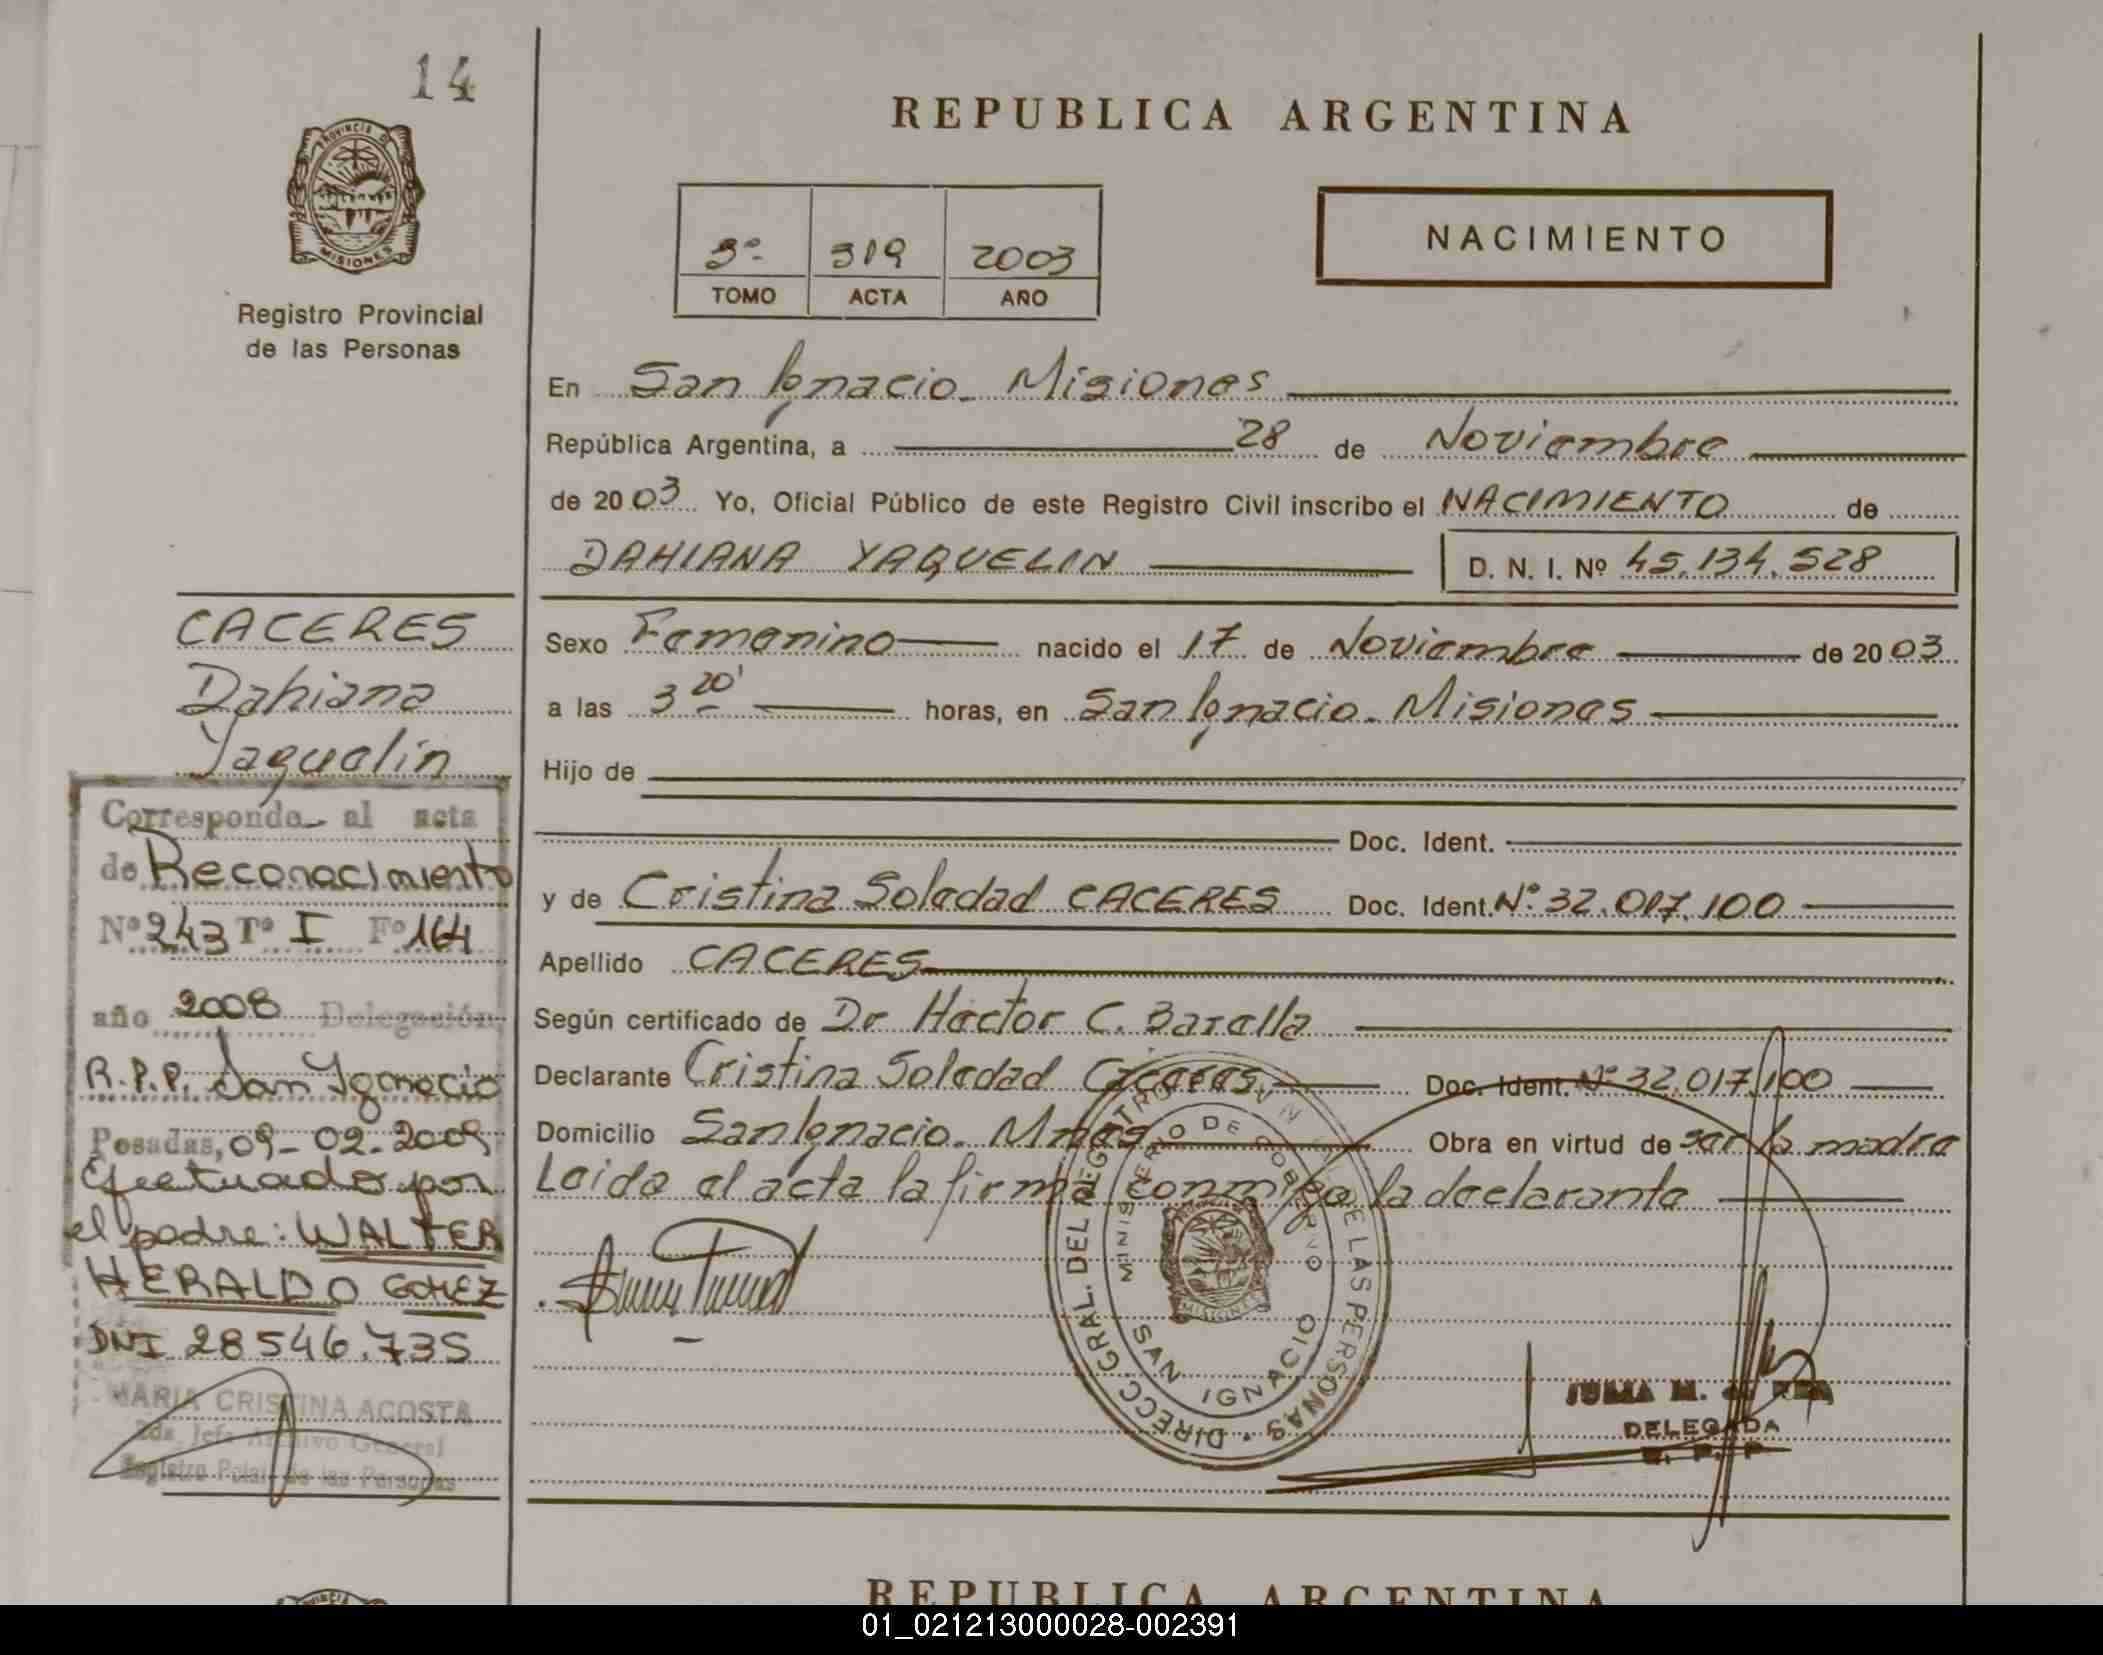 14
PROVINCIA DE
MISIONES
Registro Provincial
de las Personas
REPUBLICA ARGENTINA
3º- 319 2003
TOMO ACTA AÑO
NACIMIENTO
En San Ignacio - Misiones
República Argentina, a 28 de Noviembre
de 2003 Yo, Oficial Público de este Registro Civil inscribo el NACIMIENTO de
DAHIANA YAQUELIN D. N. I. Nº 45.134.528
Sexo Femenino nacido el 17 de Noviembre de 2003
a las 3 20' horas, en San Ignacio - Misiones
Hijo de
Doc. Ident.
y de Cristina Soledad CACERES Doc. Ident. Nº 32.017.100
Apellido CACERES
Según certificado de Dr Hector C. Barella
Declarante Cristina Soledad Caceres Doc. Ident. Nº 32.017.100
Domicilio San Ignacio - Mnes Obra en virtud de ser la madre
Leida el acta la firma conmigo la declarante
DIRECC. GRAL. DEL REGISTRO DE LAS PERSONAS
MINISTERIO DE GOBIERNO
MISIONES
SAN IGNACIO
DELEGADA
R. P. P.
CACERES
Dahiana
Yaquelin
Corresponde al acta
de Reconocimiento
Nº 243 Tº I Fº 164
año 2008 Delegación
R.P.P. San Ignacio
Posadas, 09-02-2009
Efectuado por
el padre: WALTER
HERALDO GOMEZ
DNI 28546.735
MARIA CRISTINA ACOSTA
2da. Jefe Archivo General
Registro de las Personas
REPUBLICA ARGENTINA
01_021213000028-002391